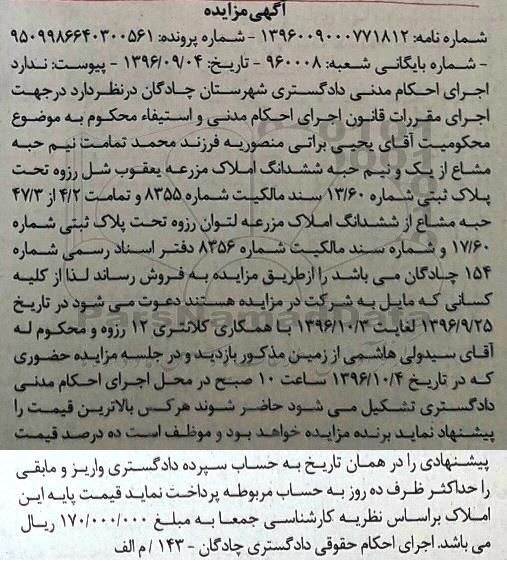 آگهی مزایده
شماره نامه: ۱۳۹۶۰۰۹۰۰۰۷۷۱۸۱۲ - شماره پرونده: ۹۵۰۹۹۸۶۶۴۰۳۰۰۵۶۱
- شماره بایگانی شعبه: ۹۶۰۰۰۸ - تاریخ: ۱۳۹۶/۰۹/۰۴ - پیوست: ندارد
اجرای احکام مدنی دادگستری شهرستان چادگان درنظردارد درجهت
اجرای مقررات قانون اجرای احکام مدنی و استیفاء محکوم به موضوع
محکومیت آقای یحیی براتی منصوریه فرزند محمد تمامت نیم حبه
مشاع از یک و نیم حبه ششدانگ املاک مزرعه یعقوب شل رزوه تحت
پلاک ثبتی شماره ۱۳/۶۰ سند مالکیت شماره ۸۳۵۵ و تمامت ۴/۲ از ۴۷/۳
حبه مشاع از ششدانگ املاک مزرعه لتوان رزوه تحت پلاک ثبتی شماره
۱۷/۶۰ و شماره سند مالکیت شماره ۸۳۵۶ دفتر اسناد رسمی شماره
۱۵۴ چادگان می باشد را ازطریق مزایده به فروش رساند لذا از کلیه
کسانی که مایل به شرکت در مزایده هستند دعوت می شود در تاریخ
۱۳۹۶/۹/۲۵ لغایت ۱۳۹۶/۱۰/۳ با همکاری کلانتری ۱۲ رزوه و محکوم له
آقای سیدولی هاشمی از زمین مذکور بازدید و در جلسه مزایده حضوری
که در تاریخ ۱۳۹۶/۱۰/۴ ساعت ۱۰ صبح در محل اجرای احکام مدنی
دادگستری تشکیل می شود حاضر شوند هرکس بالاترین قیمت را
پیشنهاد نماید برنده مزایده خواهد بود و موظف است ده درصد قیمت
پیشنهادی را در همان تاریخ به حساب سپرده دادگستری واریز و مابقی
را حداکثر ظرف ده روز به حساب مربوطه پرداخت نماید قیمت پایه این
املاک براساس نظریه کارشناسی جمعا به مبلغ ۱۷۰/۰۰۰/۰۰۰ ریال
می باشد. اجرای احکام حقوقی دادگستری چادگان - ۱۴۳ / م الف
ParsNamadData